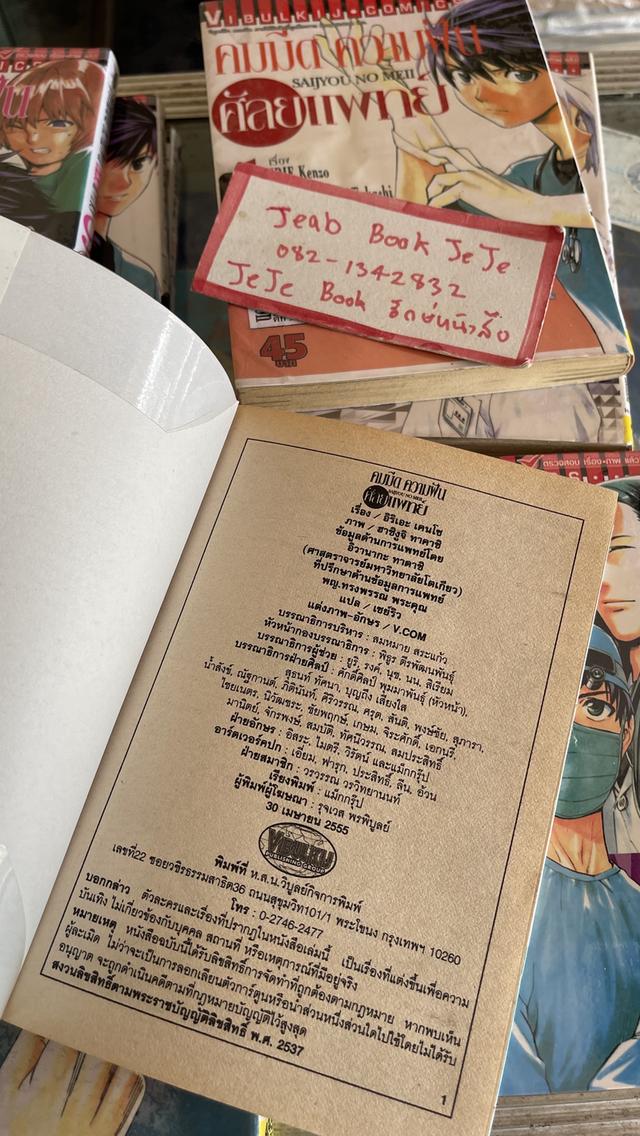 VIBULKIJ COMICS
คมมีด ความฝัน
SAIJYOU NO MEII
ศัลยแพทย์
เรื่อง
Kenzo
Jeab Book JeJe
082-1342832
JeJe Book
45
บาท
ตรวจสอบ เรื่อง-ภาพ แล้ว
คมมีด ความฝัน
SAIJYOU NO MEII
ศัลยแพทย์
เรื่อง / อิริเอะ เคนโซ
ภาพ / ฮาชิงูจิ ทาคาชิ
ข้อมูลด้านการแพทย์โดย
อิวานากะ ทาดาชิ
(ศาสตราจารย์มหาวิทยาลัยโตเกียว)
ที่ปรึกษาด้านข้อมูลการแพทย์
พญ.ทรงพรรณ พระคุณ
แปล / เชย์ริว
แต่งภาพ-อักษร / V.COM
บรรณาธิการบริหาร : สมหมาย สระแก้ว
หัวหน้ากองบรรณาธิการ : พิธูร ตีรพัฒนพันธุ์
บรรณาธิการผู้ช่วย : ยูริ, รงค์, นุช, นน, สิเรียม
บรรณาธิการฝ่ายศิลป์ : ศักดิ์ศิลป์ พุมมาพันธุ์ (หัวหน้า),
สุธนท์ ทัศนา, บุญถึง เสียงใส
น้ำสังข์, ณัฐกานต์, ภิตินันท์, ศิริวรรณ, ครุต, สันติ, พงษ์ชัย, สุภารา,
ไชยเนตร, นิวัฒชระ, ชัยพฤกษ์, เกษม, จิระศักดิ์, เอกนรี,
มานิตย์, จักรพงษ์, สมบัติ, ทัศนีวรรณ, สมประสิทธิ์
ฝ่ายอักษร : อิสระ, ไมตรี, วิรัตน์ และแม็กกรุ๊ป
อาร์ตเวอร์คปก : เอี่ยม, ฟารุก, ประสิทธิ์, ลีน, อ้วน
ฝ่ายสมาชิก : วรวรรณ วรวิทยานนท์
เรียงพิมพ์ : แม็กกรุ๊ป
ผู้พิมพ์ผู้โฆษณา : รุจเวส พรพิบูลย์
30 เมษายน 2555
VIBULKIJ
PUBLISHING GROUP
พิมพ์ที่ ห.ส.น.วิบูลย์กิจการพิมพ์
เลขที่22 ซอยวชิรธรรมสาธิต36 ถนนสุขุมวิท101/1 พระโขนง กรุงเทพฯ 10260
โทร : 0-2746-2477
บอกกล่าว ตัวละครและเรื่องที่ปรากฏในหนังสือเล่มนี้ เป็นเรื่องที่แต่งขึ้นเพื่อความ
บันเทิง ไม่เกี่ยวข้องกับบุคคล สถานที่ หรือเหตุการณ์ที่มีอยู่จริง
หมายเหตุ หนังสือฉบับนี้ได้รับลิขสิทธิ์การจัดทำที่ถูกต้องตามกฎหมาย หากพบเห็น
ผู้ละเมิด ไม่ว่าจะเป็นการลอกเลียนตัวการ์ตูนหรือนำส่วนหนึ่งส่วนใดไปใช้โดยไม่ได้รับ
อนุญาต จะถูกดำเนินคดีตามที่กฎหมายบัญญัติไว้สูงสุด
สงวนลิขสิทธิ์ตามพระราชบัญญัติลิขสิทธิ์ พ.ศ. 2537
1